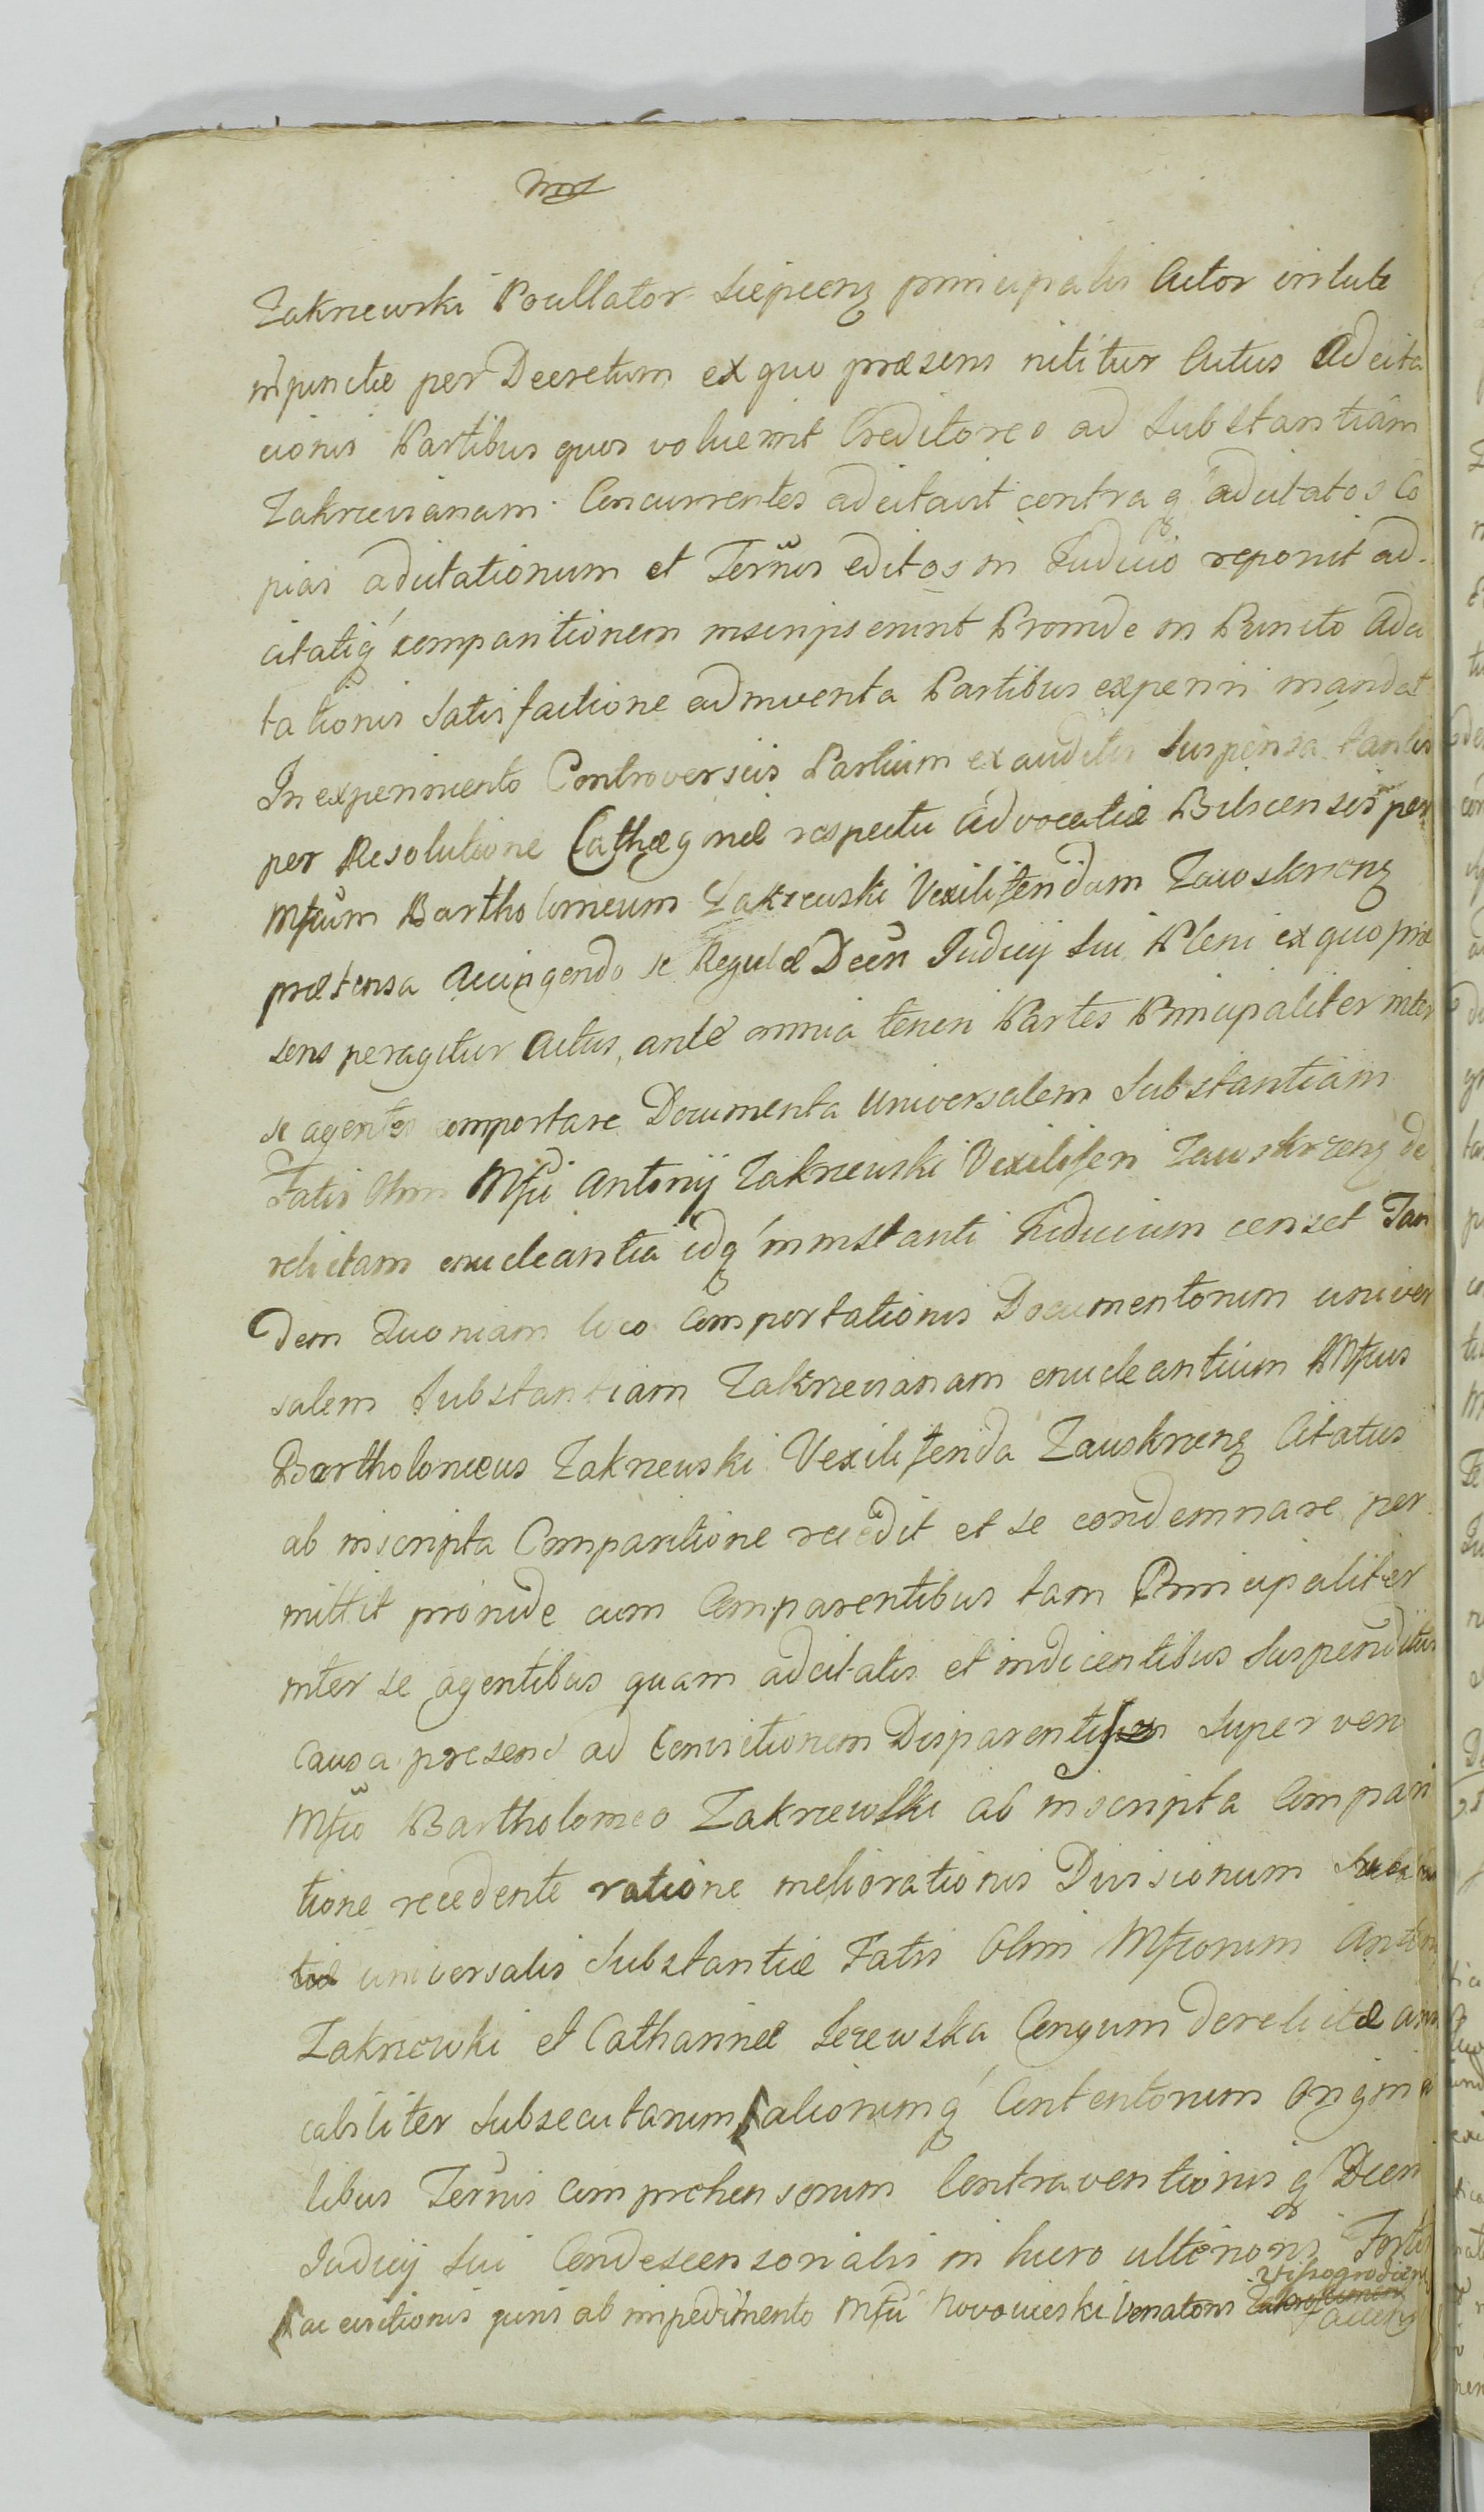 Zakrzewski Pocillator Siepcens principalis Actor virtute
injunctæ per Decretum ex quo præsens nititur Actus Adcita
cionis Partibus quos voluerint Creditores ad Substantiam
Zakrzevianam Concurrentes adcitavit contra q adcitatos Co
pias adcitationum et Termis editos in Judicio reponit ad
citatiq comparitionem inscripserunt Proinde in Puncto Adci
tationis Satisfactione adinventa Partibus experiri mandat
In experimento Controversiis Partium exauditis Suspensa tantis
per Resolutione Cathegoriæ respectu Advocatiæ Bilscensis per
Mfcum Bartholomeum Zakrzewski Vexiliferidam Zawskrzens
prætensa Accingendo se Regulæ Decti Judicij sui Pleni ex quo præ
sens peragitur Actus, ante omnia teneri Partes Principaliter inter
se agentes comportare Documenta Universalem Substantiam
Fatis Olim Mfci Antonij Zakrzewski Vexiliferi Zawskrzens de
relictam enucleantia idq in instanti Judicium censet Tan
dem Quoniam loco Comportationis Documentorum univer
salem Substantiam Zakrzevianam enucleantium Mfcus
Bartholomeus Zakrzewski Vexiliferida Zawskrzens Citatus
ab inscripta Comparitione recedit et se condemnare per
mittit proinde cum Comparentibus tam Principaliter
inter se agentibus quam adcitatis et indicentibus Suspenditur
causa præsens ad Convictionem Disparentium Super vero
Mfco Bartholomeo Zakrzewski ab inscripta Compari
tione recedente ratione meliorationis Divisionum
universalis Substantiæ Fatis Olim Mfcorum Antonij
Zakrzewski et Catharinæ Conjgum derelictæ ami
cabiliter Subsecutarum aliorumq Contentorum Origina
libus Termis comprehensorum Contraventionis q Decti
Judicij sui Condescensorialis in lucro ulterioris Fortis
ac evictionis juris ab impedimento Mfci Nowowieski Venatoris Vissogrodiens